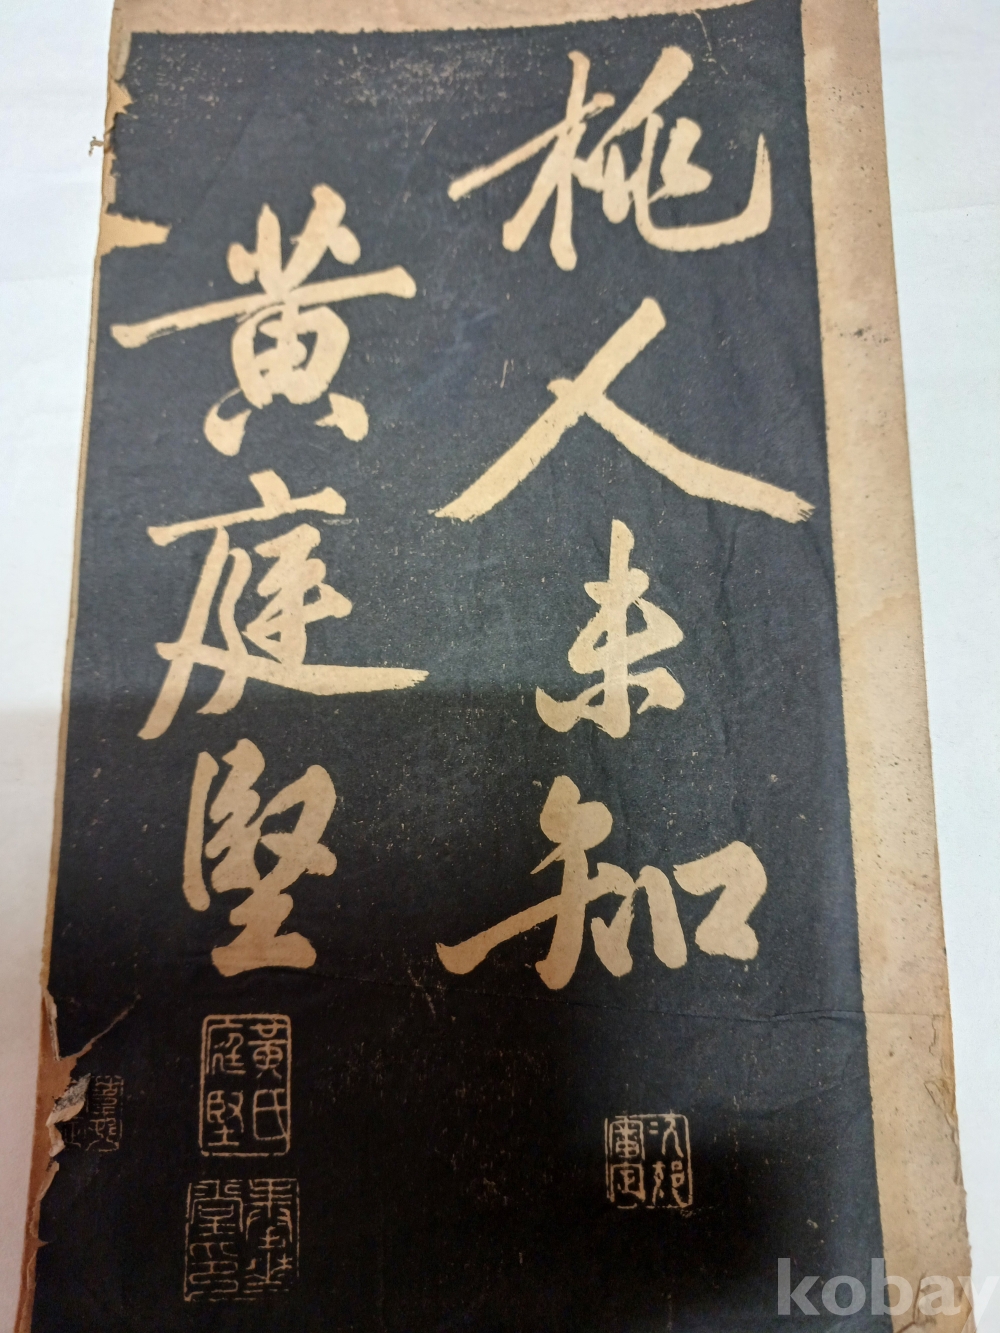 桃人未知
黄庭堅
黃氏庭堅
kobay